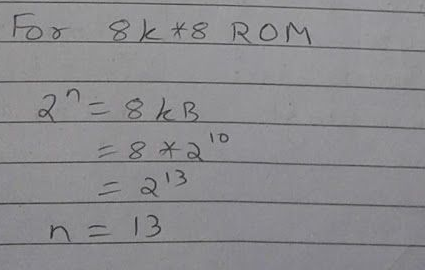 For 8k *8 ROM
2ⁿ = 8 kB
= 8 * 2¹⁰
= 2¹³
n = 13